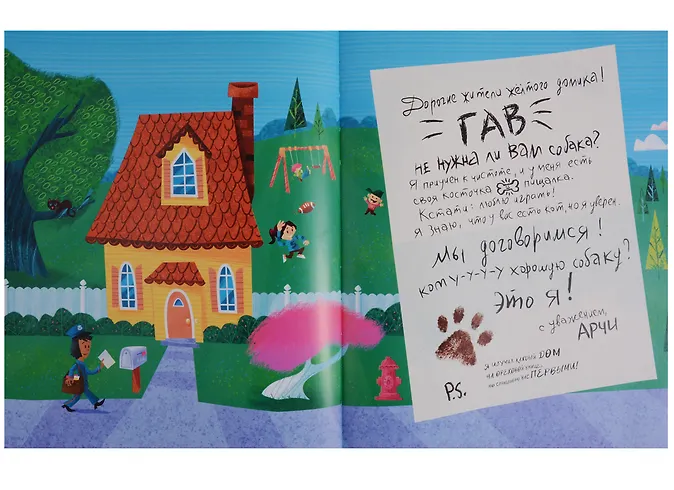 Дорогие жители жёлтого домика!
ГАВ
не нужна ли вам собака?
Я приучен к чистоте, и у меня есть
своя косточка пищалка.
Кстати: люблю играть!
Я знаю, что у вас есть кот, но я уверен.
Мы договоримся!
кому-у-у-у хорошую собаку?
Это Я!
с уважением,
АРЧИ
P.S.
Я изучил каждый дом
на ореховой улице,
ПЕРВЫМИ!